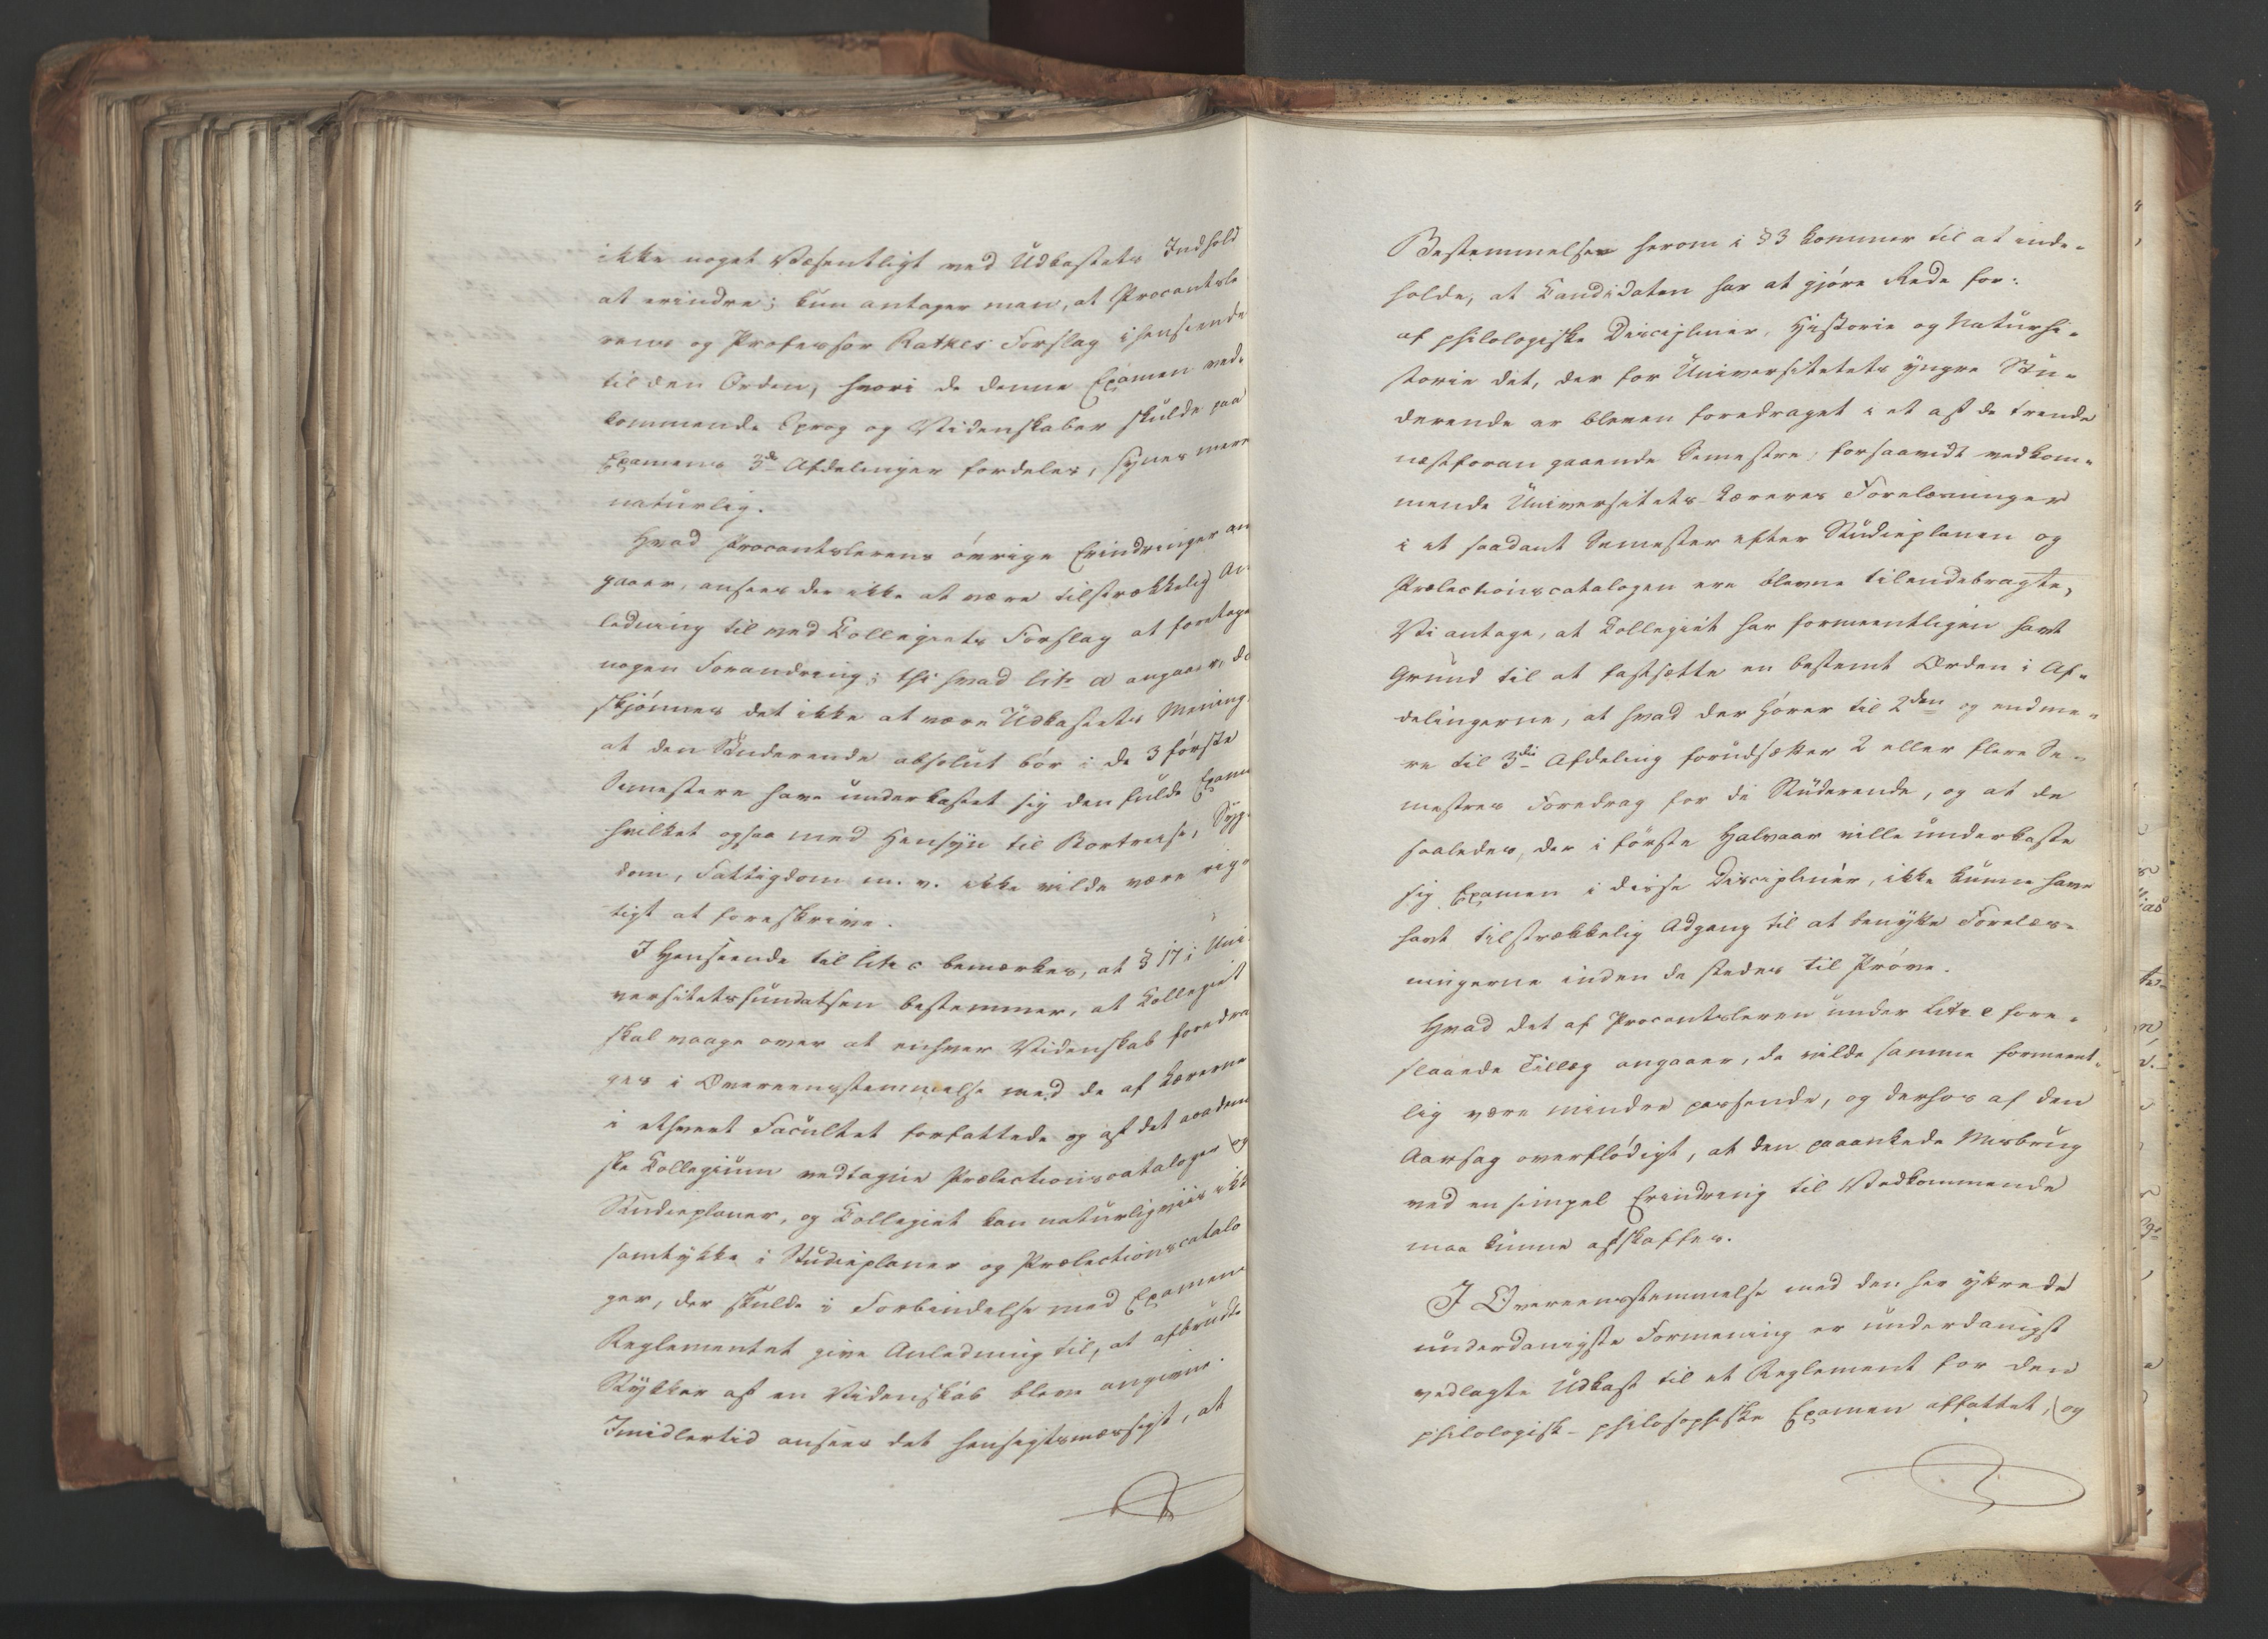 ikke noget Væsentligt ved Udkastets Indhold
at erindre; kun antager man, at Procantsle
rens og Professor Ratkes Forslag i henseende
til den Orden, hvori de denne Examen ved-
kommende Sprog og Videnskaber skulde paa
Examens 3de Afdelinger fordeles, synes mere
naturlig.
Hvad Procantslerens øvrige Erindringer an
gaaer, ansees der ikke at være tilstrækkelig An-
ledning til ved Collegiets Forslag at foretage
nogen Forandring; thi hvad litr a angaaer, da
skjønnes det ikke at være Udkastets Mening,
at den Studerende absolut bør i de 3 første
Semestere have underkastet sig den fulde Exame
hvilket ogsaa med Hensyn til Bortreise, Syg-
dom, Fattigdom m. v. ikke vilde være rig-
tigt at foreskrive.
I Henseende til litr c bemærkes, at § 17 i Uni-
versitetsfundatsen bestemmer, at Collegiet
skal vaage over at enhver Videnskab foredra
ges i Overeensstemmelse med de af Lærerne
i ethvert Facultet forfattede og af det acadmi
ske Collegium vedtagne Prælectionscataloger og
Studieplaner, og Collegiet kan naturligviis ikk
samtykke i Studieplaner og Prælectionscatalo
ger, der skulde i Forbindelse med Examens
Reglementet give Anledning til, at afbrudte
Stykker af en Videnskab bleve angivne.
Imidlertid ansees det hensigtsmæssigt, at
Bestemmelsen herom i § 3 kommer til at inde-
holde, at Candidaten har at gjøre Rede for:
af philologiske Discipliner, Historie og Naturhi-
storie det, der for Universitetets yngre Stu-
derende er bleven foredraget i et af de trende
næstforangaaende Semestre, forsaavidt vedkom-
mende Universitets-Læreres Forelæsninger
i et saadant Semester efter Studieplanen og
Prælectionscatalogen ere blevne tilendebragte,
Vi antage, at Collegiet har formeentligen havt
Grund til at fastsætte en bestemt Orden i Af-
delingerne, at hvad der hører til 2den og endme-
re til 3die Afdeling forudsætter 2 eller flere Se-
mestres Foredrag for de Studerende, og at de
saaledes, der i første Halvaar ville underkaste
sig Examen i disse Discipliner, ikke kunne have
havt tilstrækkelig Adgang til at benytte Forelæs-
ningerne inden de stedes til Prøve.
Hvad det af Procantsleren under Litr. e fore-
slaaede Tillæg angaaer, da vilde samme formeent-
lig være mindre passende, og derhos af den
Aarsag overflødigt, at den paaankede Misbrug
ved en simpel Erindring til Vedkommende
maa kunne afskaffes.
I Overeensstemmelse med den her yttrede
underdanigste Formening er underdanigst
vedlagte Udkast til et Reglement for den
philologisk-philosophiske Examen affattet, og